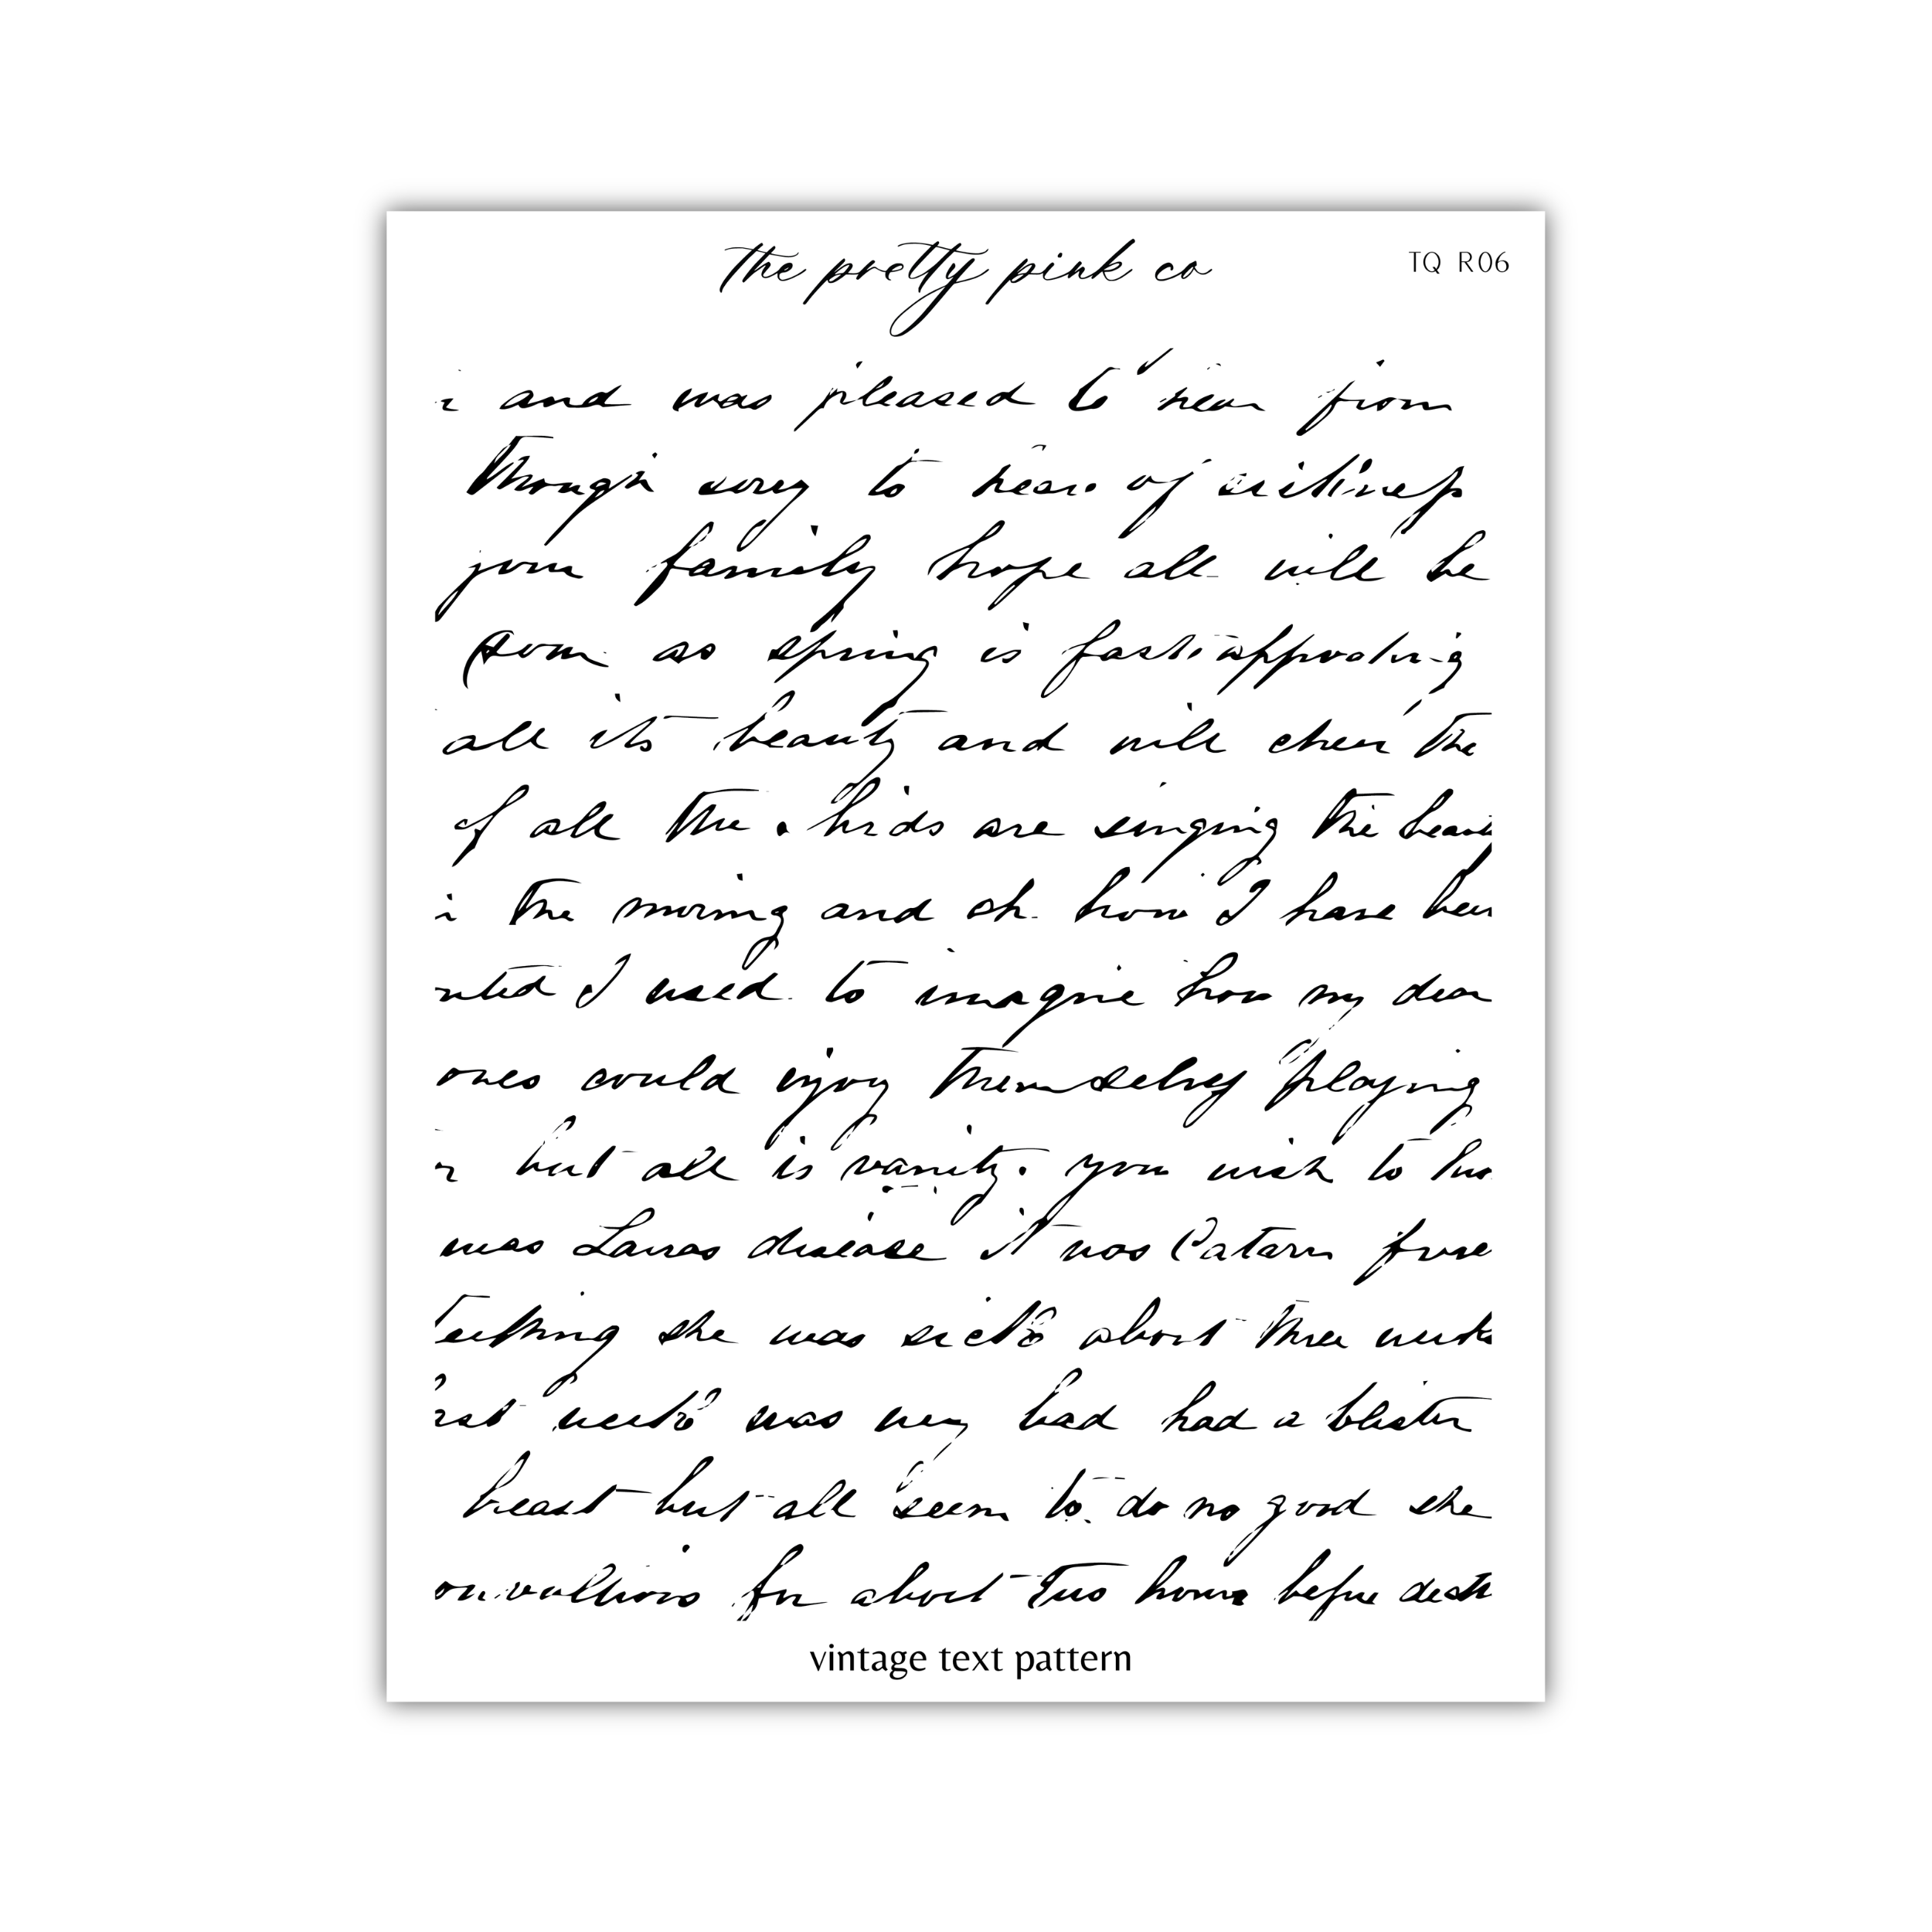 the pretty pink co
TQ R06
and was pleased to hear from
though sorry to hear of sickness
your family hope all will be
soon as spring is fast approching
all its beauty and will cheer the
of all the birds are singing the
the morning and oh how I have been
I used to imagine how my dear
ones would enjoy themselves playing
but all is vanity. you wish to
was Lauras disease it was Catarr
teething she was sick about three weeks
week was very bad had a blister
breast but all seem to do no good she
for about two hours before death
vintage text pattern